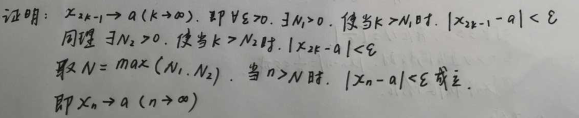 证明: x₂ₖ₋₁→a(k→∞). 即∀ε>0. ∃N₁>0. 使当k>N₁时. |x₂ₖ₋₁-a|<ε
同理 ∃N₂>0. 使当k>N₂时. |x₂ₖ-a|<ε
取N=max(N₁.N₂). 当n>N时. |xₙ-a|<ε成立.
即xₙ→a(n→∞)